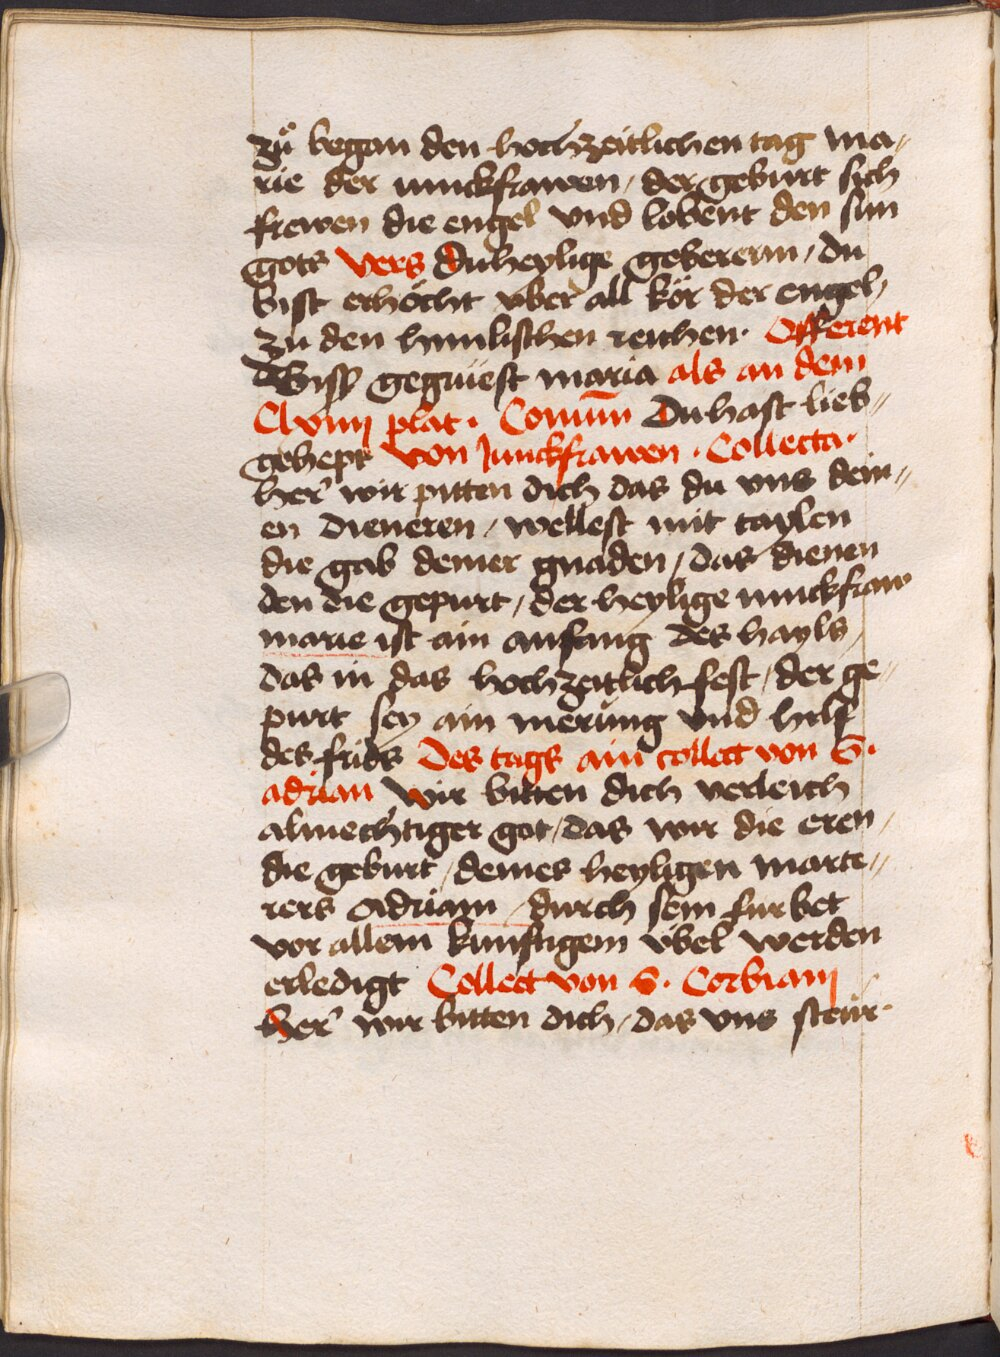 zuͦ began den hochzeitlichen tag ma⸗
rie der iunckfrawen / der geburt sich
frewen die engel vnd lobent den sun
gots vers Du heylige gebererin / du
bist erhöcht vber all kör der engel /
zu den himlischen reichen · Offerent
Biss gegrüest maria als an dem
Clxviiij plat · Comūn Du hast lieb⸗
gehept von Junckfrawen · Collecta ·
her wir pitten dich das du vns dein⸗
en dieneren / wellest mit taylen
die gab deiner gnaden / das dienen
den die gepurt / der heylige iunckfraw
marie ist ain anfang des hayls /
das in das hochzeitlich fest / der ge⸗
purt sey ain merung vnd hilf
des frids Des tags ain collect von S ·
adrian Wir bitten dich verleich
almechtiger got / das wir die eren /
die geburt / deines heyligen marte⸗
rers Adriani / durch sein furbet
vor allem kunftigem vbel werden
erledigt Collect von S · Corbiani
Her wir bitten dich / das vns steür ·